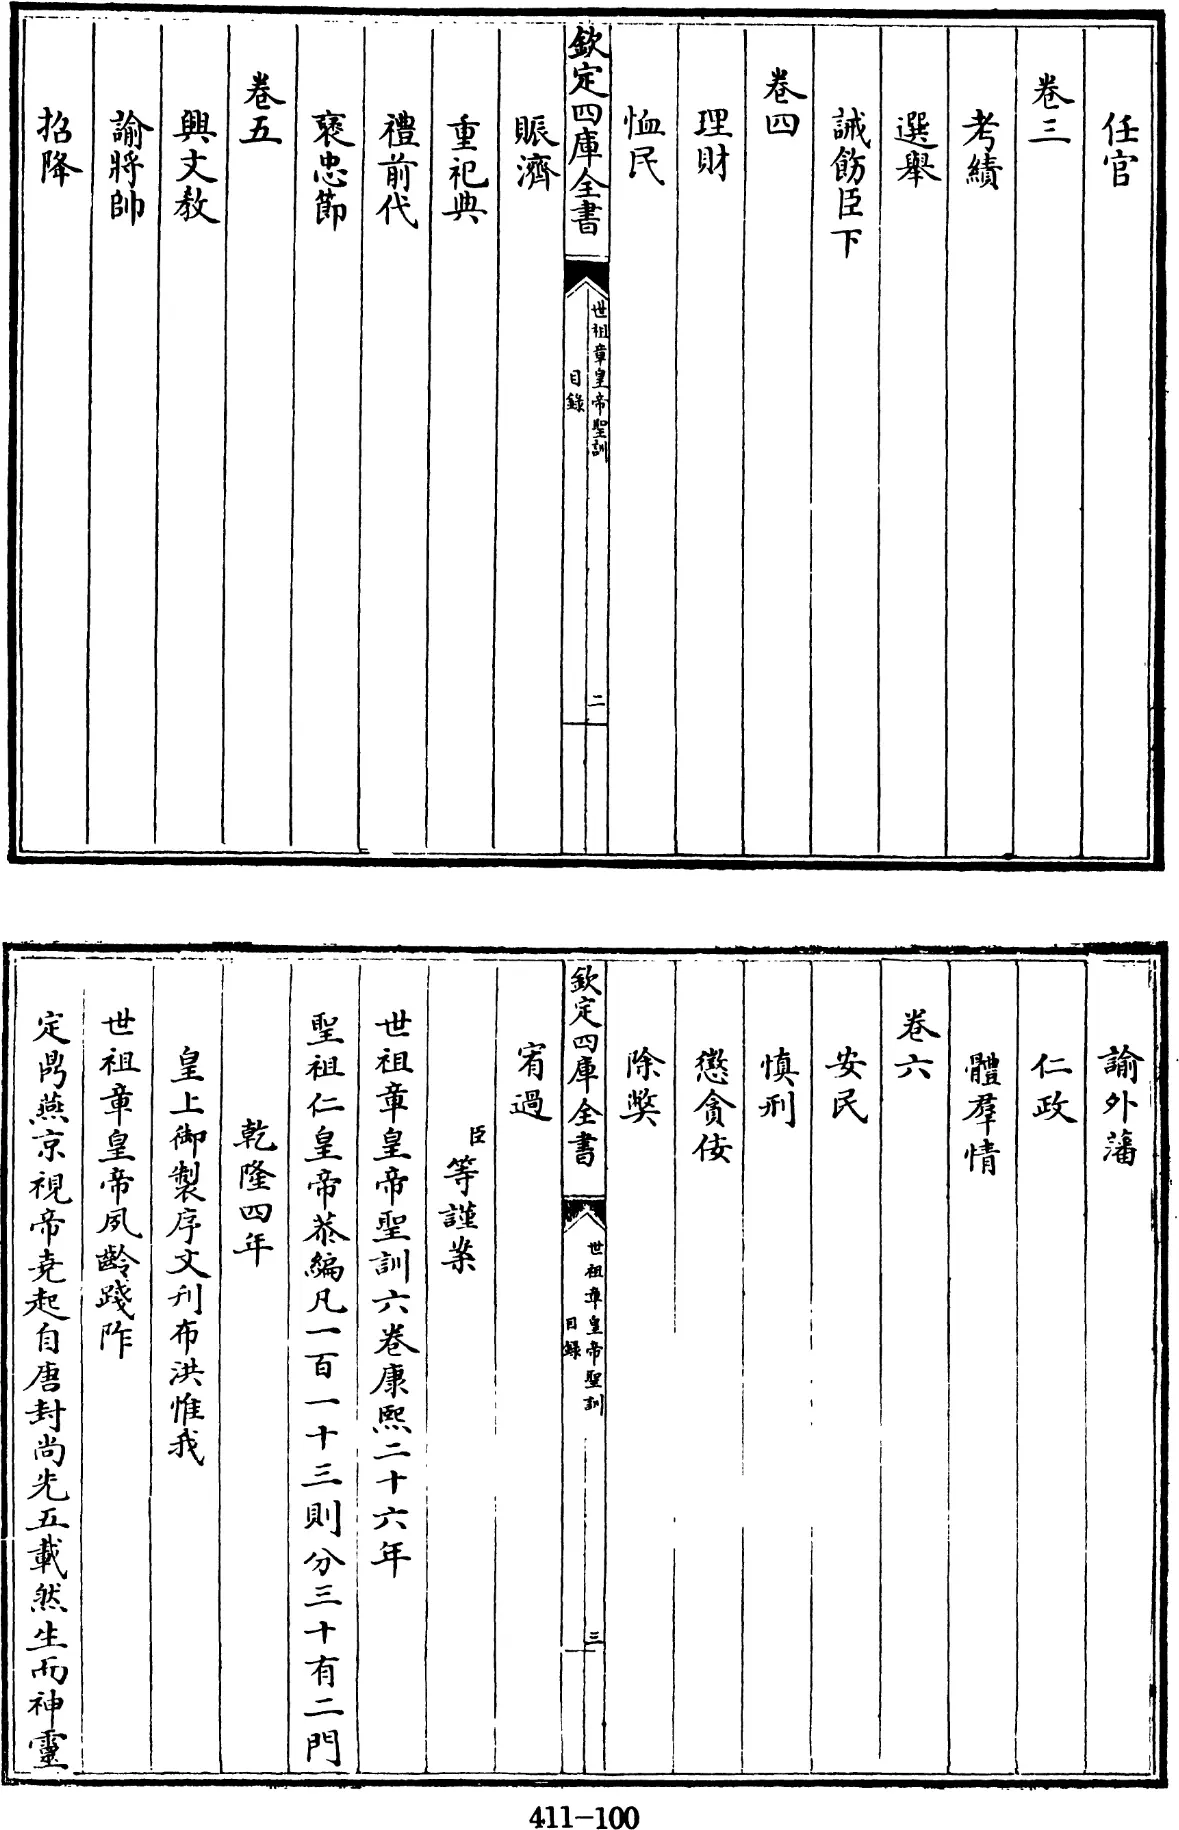 任官
卷三
考績
選舉
誡飭臣下
卷四
理財
恤民
欽定四庫全書
世祖章皇帝聖訓
目錄
二
賑濟
重祀典
禮前代
褒忠節
卷五
興文教
諭將帥
招降
諭外藩
仁政
體羣情
卷六
安民
慎刑
懲貪佞
除弊
欽定四庫全書
世祖章皇帝聖訓
目錄
三
宥過
臣等謹案
世祖章皇帝聖訓六卷康熙二十六年
聖祖仁皇帝恭編凡一百一十三則分三十有二門
乾隆四年
皇上御製序文刋布洪惟我
世祖章皇帝夙齡踐阼
定鼎燕京視帝堯起自唐封尚先五載然生而神靈
411-100